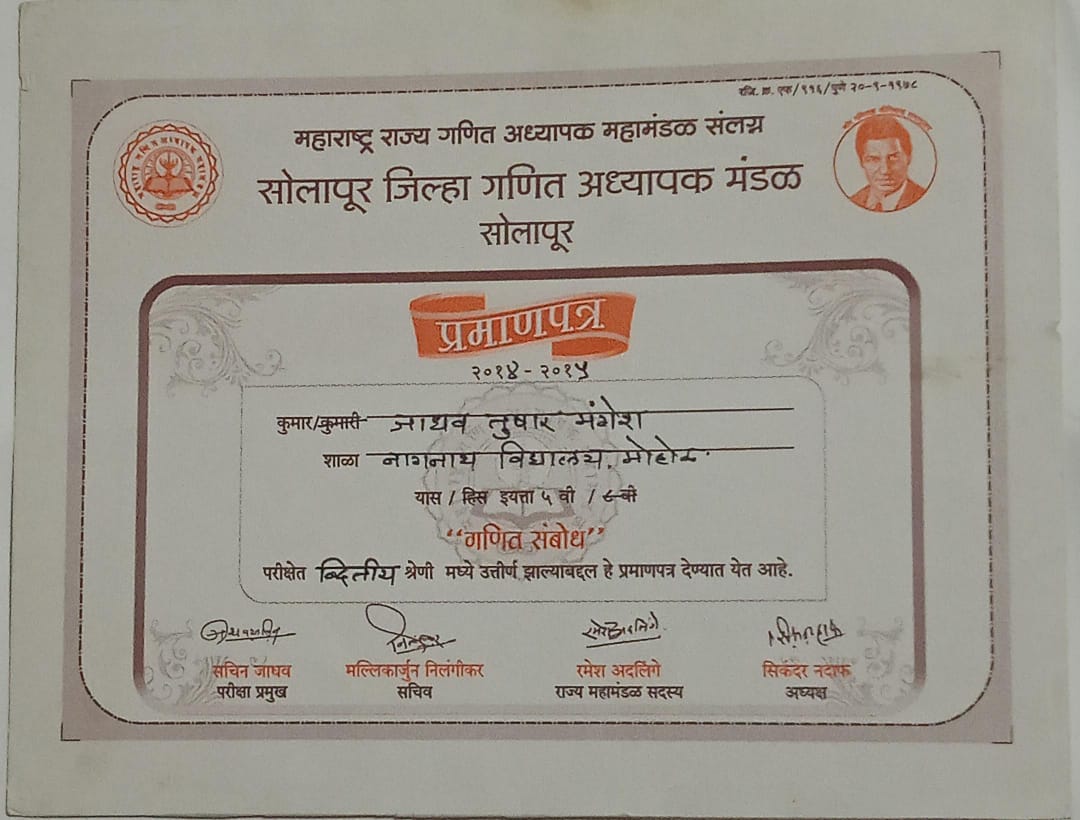 रजि. क्र. एफ/११६/पुणे २०-९-१९७८
महाराष्ट्र राज्य गणित अध्यापक महामंडळ संलग्न
सोलापूर जिल्हा गणित अध्यापक मंडळ
सोलापूर
प्रमाणपत्र
२०१४ - २०१५
कुमार/कुमारी जाधव तुषार मंगेश
शाळा नागनाथ विद्यालय, मोहोळ.
यास / हिस इयत्ता ५ वी / ८ वी
“गणित संबोध”
परीक्षेत द्वितीय श्रेणी मध्ये उत्तीर्ण झाल्याबद्दल हे प्रमाणपत्र देण्यात येत आहे.
सचिन जाधव मल्लिकार्जुन निलंगीकर रमेश अदलिंगे सिकंदर नदाफ
परीक्षा प्रमुख सचिव राज्य महामंडळ सदस्य अध्यक्ष